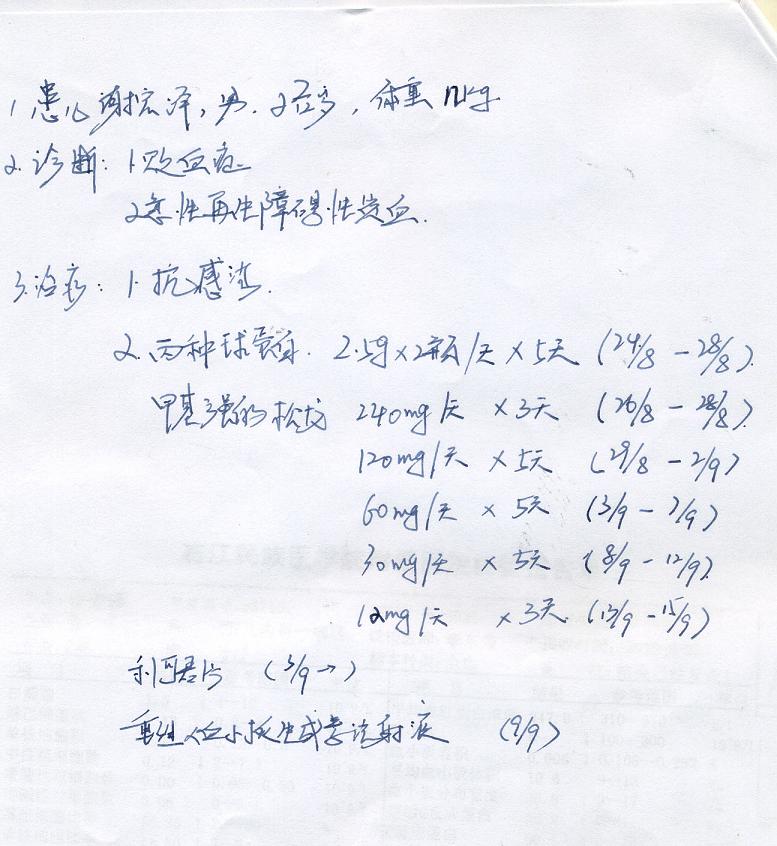 1.患儿谢宏泽,男.2岁多,体重12kg
2.诊断:1.败血症
2急性再生障碍性贫血.
3.治疗:1.抗感染.
2.丙种球蛋白. 2.5g×2瓶/天×5天 (24/8-28/8).
甲基强的松龙 240mg/天 ×3天 (26/8-28/8).
120mg/天 ×5天 (29/8-2/9)
60mg/天 ×5天 (3/9-7/9)
30mg/天 ×5天 (8/9-12/9).
12mg/天 ×3天.(13/9-15/9)
利可君片 (3/9→)
重组人血小板生成素注射液 (9/9)